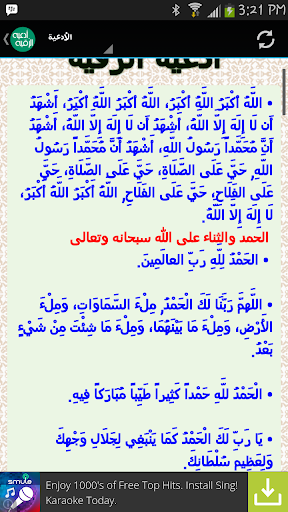 3:21 PM
الأدعية
أدعية الرقية
أدعية الرقية
• اللَّهُ أَكْبَرُ اللَّهُ أَكْبَرُ، اللَّهُ أَكْبَرُ اللَّهُ أَكْبَرُ، أَشْهَدُ
أَن لَا إِلَهَ إِلَّا اللَّهُ، أَشْهَدُ أَن لَا إِلَهَ إِلَّا اللَّهُ، أَشْهَدُ أَنَّ
مُحَمَّداً رَسُولُ اللَّهِ، أَشْهَدُ أَنَّ مُحَمَّداً رَسُولُ
اللَّهِ, حَيَّ عَلَى الصَّلَاةِ، حَيَّ عَلَى الصَّلَاةِ، حَيَّ
عَلَى الفَلَاحِ، حَيَّ عَلَى الفَلَاحِ, اللَّهُ أَكْبَرُ اللَّهُ أَكْبَرُ،
لَا إِلَهَ إِلَّا اللَّهُ.
الحمد والثناء على الله سبحانه وتعالى
• الْحَمْدُ لِلَّهِ رَبِّ العالَمِينَ.
• اللَّهُمَّ رَبَّنَا لَكَ الْحَمْدُ, مِلْءَ السَّمَاوَاتِ، وَمِلْءَ
الأَرْضِ، وَمِلْءَ مَا بَيْنَهُمَا، وَمِلْءَ مَا شِئْتَ مِنْ شَيْءٍ
بَعْدُ.
• الْحَمْدُ لِلَّهِ حَمْداً كَثِيراً طَيِّباً مُبَارَكاً فِيهِ.
• يَا رَبِّ لَكَ الْحَمْدُ كَمَا يَنْبَغِي لِجَلَالِ وَجْهِكَ
وَلِعَظِيمِ سُلْطَانِكَ.
smule
Enjoy 1000's of Free Top Hits. Install Sing!
Karaoke Today.